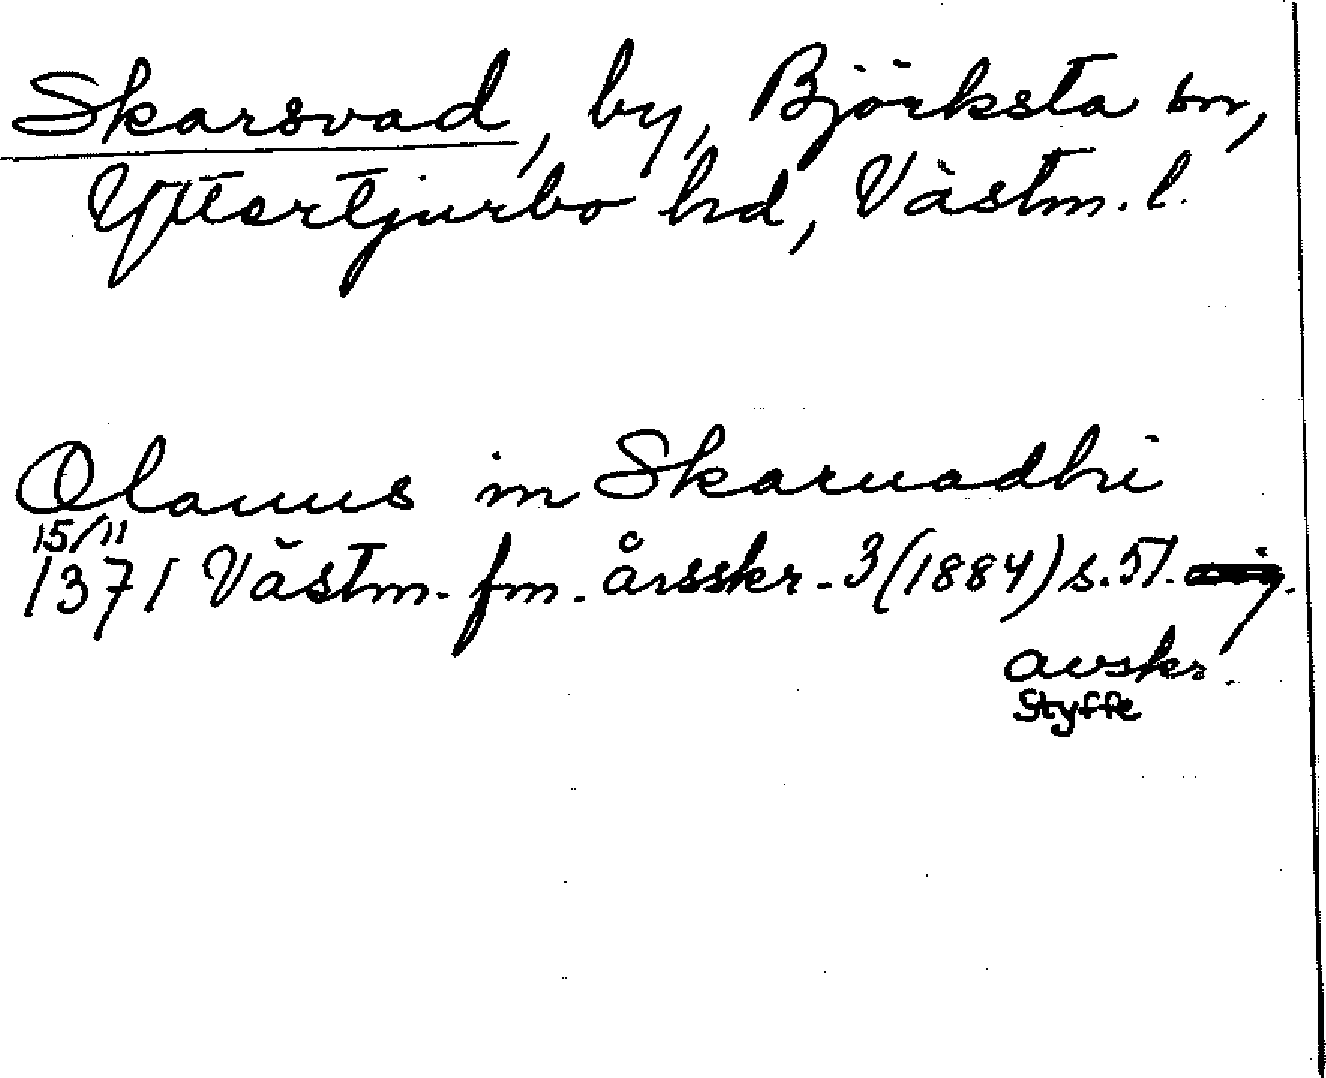 Skarsvad, by, Björksta sn,
Yttertjurbo hd, Västm. l.
Olauus in Skaruadhi
15/11
1371 Västm. fm. årsskr. 3 (1884) s. 57.
avskr.
Styffe